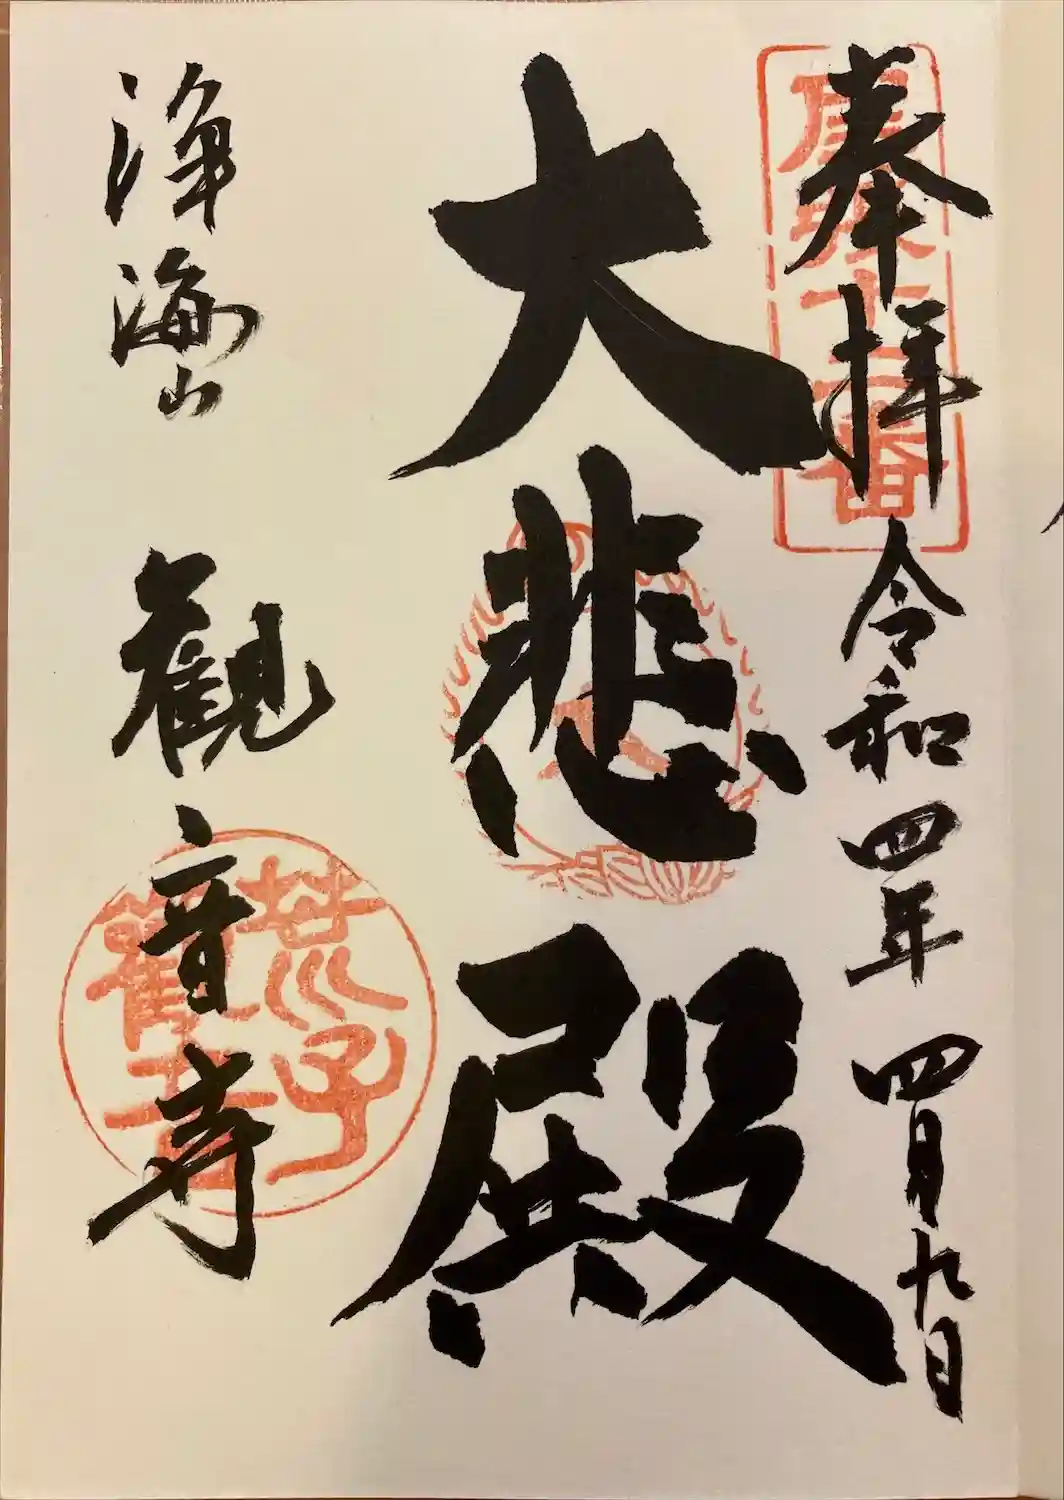 奉拝 令和四年 四月九日
大悲殿
浄海山 観音寺
荒子
觀音